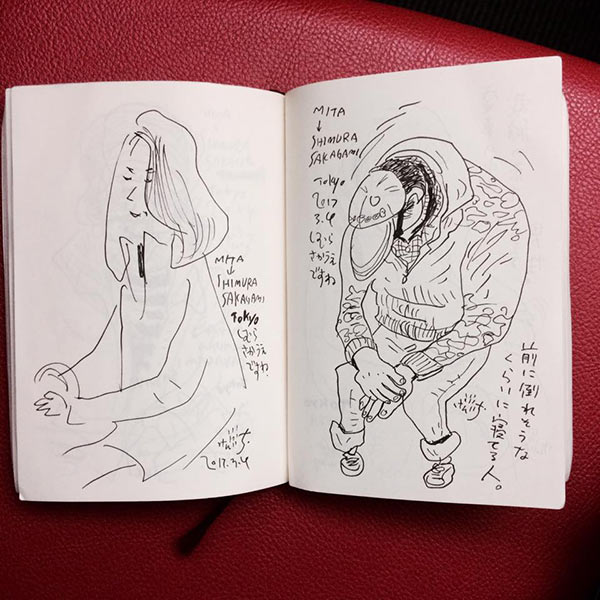 MITA
↓
SHIMURA
SAKAGAMI
TOKYO
しむら
さかうえ
ですわ
2017.3.4
MITA
↓
SHIMURA
SAKAGAMI
TOKYO
2017
3.4
しむら
さかうえ
ですわ
前に倒れそうな
くらいに寝てる人。